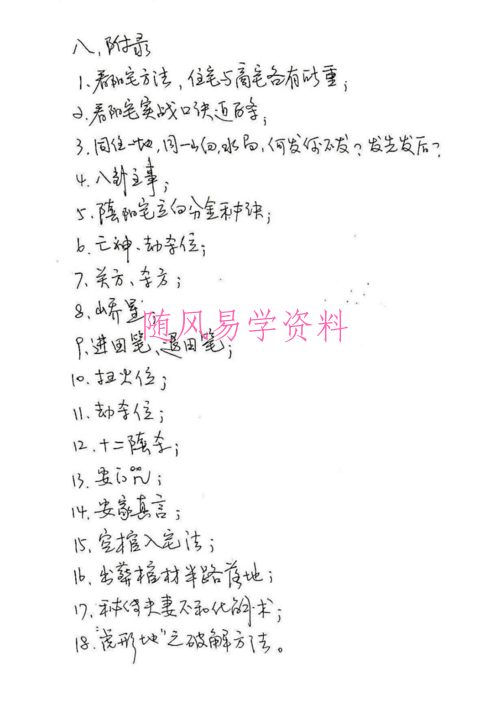 八、附录
1. 看阳宅方法，住宅与商宅各有所重；
2. 看阳宅实战口诀近百条；
3. 同住一地，同一山向，水局，何发何不发？发先发后？
4. 八卦主事；
5. 陰阳宅立向分金秘诀；
6. 亡神、劫杀位；
7. 关方、杀方；
8. 山乔星；
随风易学资料
9. 进田笔、退田笔；
10. 扫火位；
11. 劫杀位；
12. 十二陰杀；
13. 安门咒；
14. 安家真言；
15. 空棺入宅法；
16. 出葬棺材半路落地；
17. 秘传夫妻不和化的术；
18. "虎形地"之破解方法。